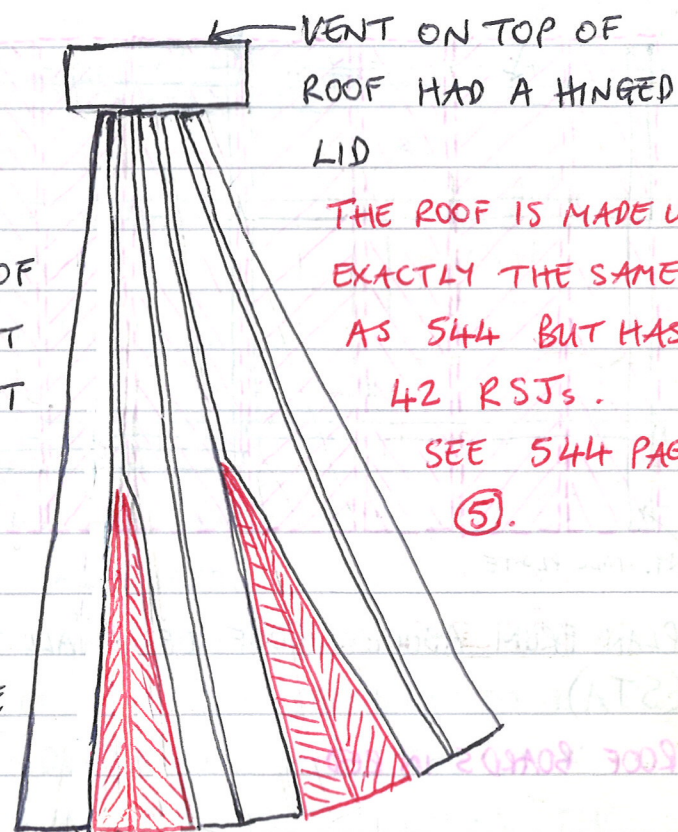 VENT ON TOP OF
ROOF HAD A HINGED
LID
THE ROOF IS MADE U
EXACTLY THE SAME
AS 544 BUT HAS
42 RSJs.
SEE 544 PAG
5.
OF
T
T
E
ROOF BOARDS